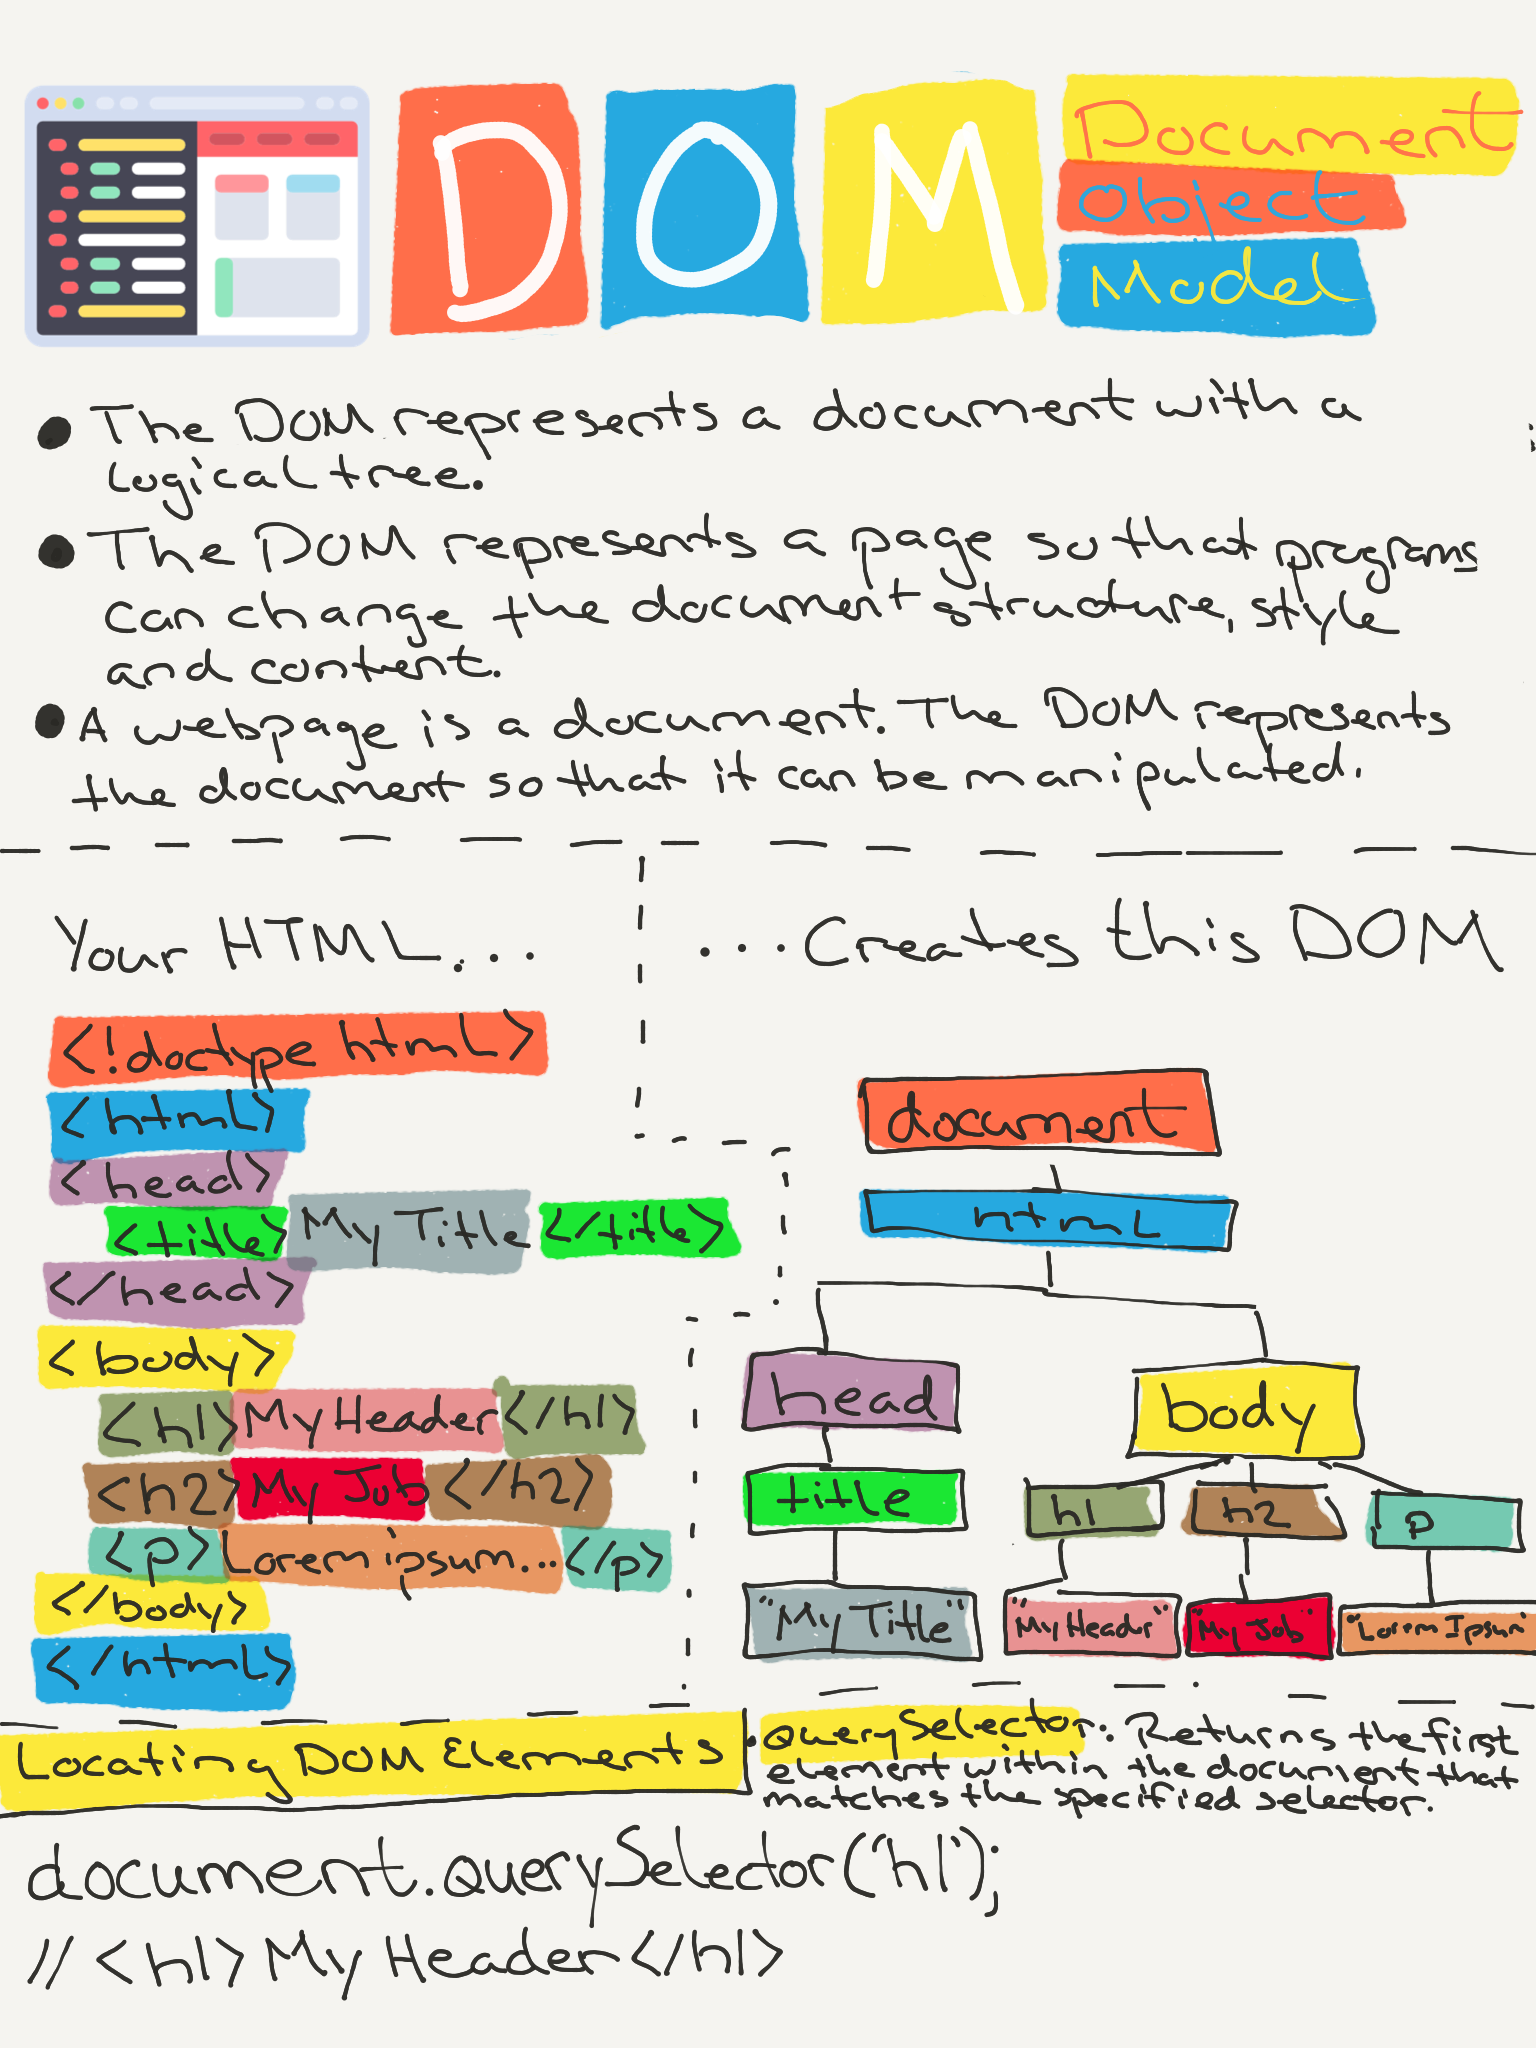 DOM
Document
Object
Model
The DOM represents a document with a
logical tree.
The DOM represents a page so that programs
can change the document structure, style
and content.
A webpage is a document. The DOM represents
the document so that it can be manipulated.
Your HTML...
<!doctype html>
<html>
<head>
<title> My Title </title>
</head>
<body>
<h1> My Header </h1>
<h2> My Job </h2>
<p> Lorem ipsum... </p>
</body>
</html>
...Creates this DOM
document
html
head body
title h1 h2 p
"My Title" "My Header" "My Job" "Lorem Ipsum"
Locating DOM Elements
.querySelector. Returns the first
element within the document that
matches the specified selector.
document.querySelector('h1');
// <h1> My Header </h1>